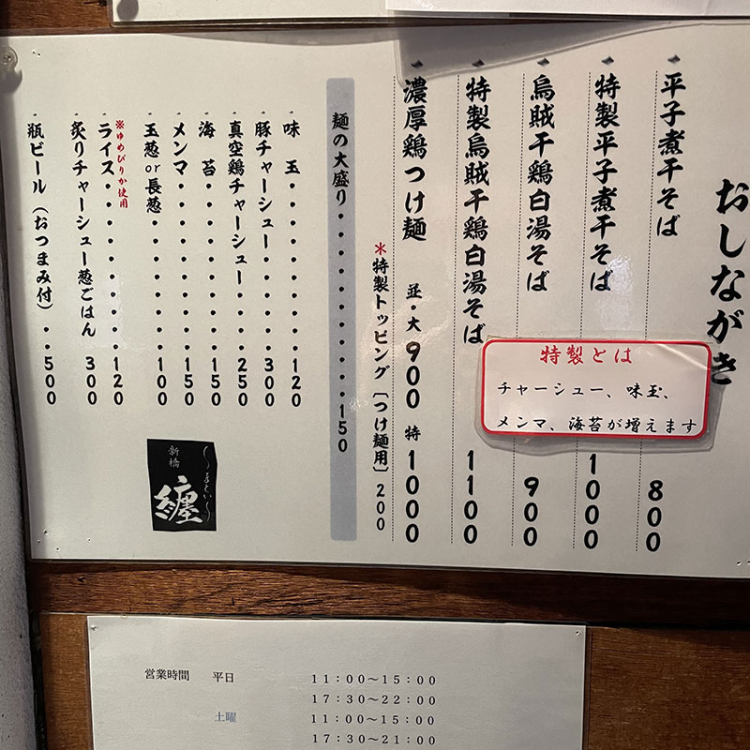 おしながき
平子煮干そば 800
特製平子煮干そば 1000
烏賊干鶏白湯そば 900
特製烏賊干鶏白湯そば 1100
濃厚鶏つけ麺 並・大900 特1000
*特製トッピング〔つけ麺用〕200
特製とは
チャーシュー、味玉、
メンマ、海苔が増えます
麺の大盛り・・・・・・・・・・150
味玉・・・・・120
豚チャーシュー・・・300
真空鶏チャーシュー・・250
海苔・・・・・150
メンマ・・・・・150
玉葱or長葱・・・・100
※ゆめぴりか使用
ライス・・・・・・120
炙りチャーシュー葱ごはん 300
瓶ビール(おつまみ付)・・500
新橋
纏
〜まとい〜
営業時間 平日 11:00〜15:00
17:30〜22:00
土曜 11:00〜15:00
17:30〜21:00